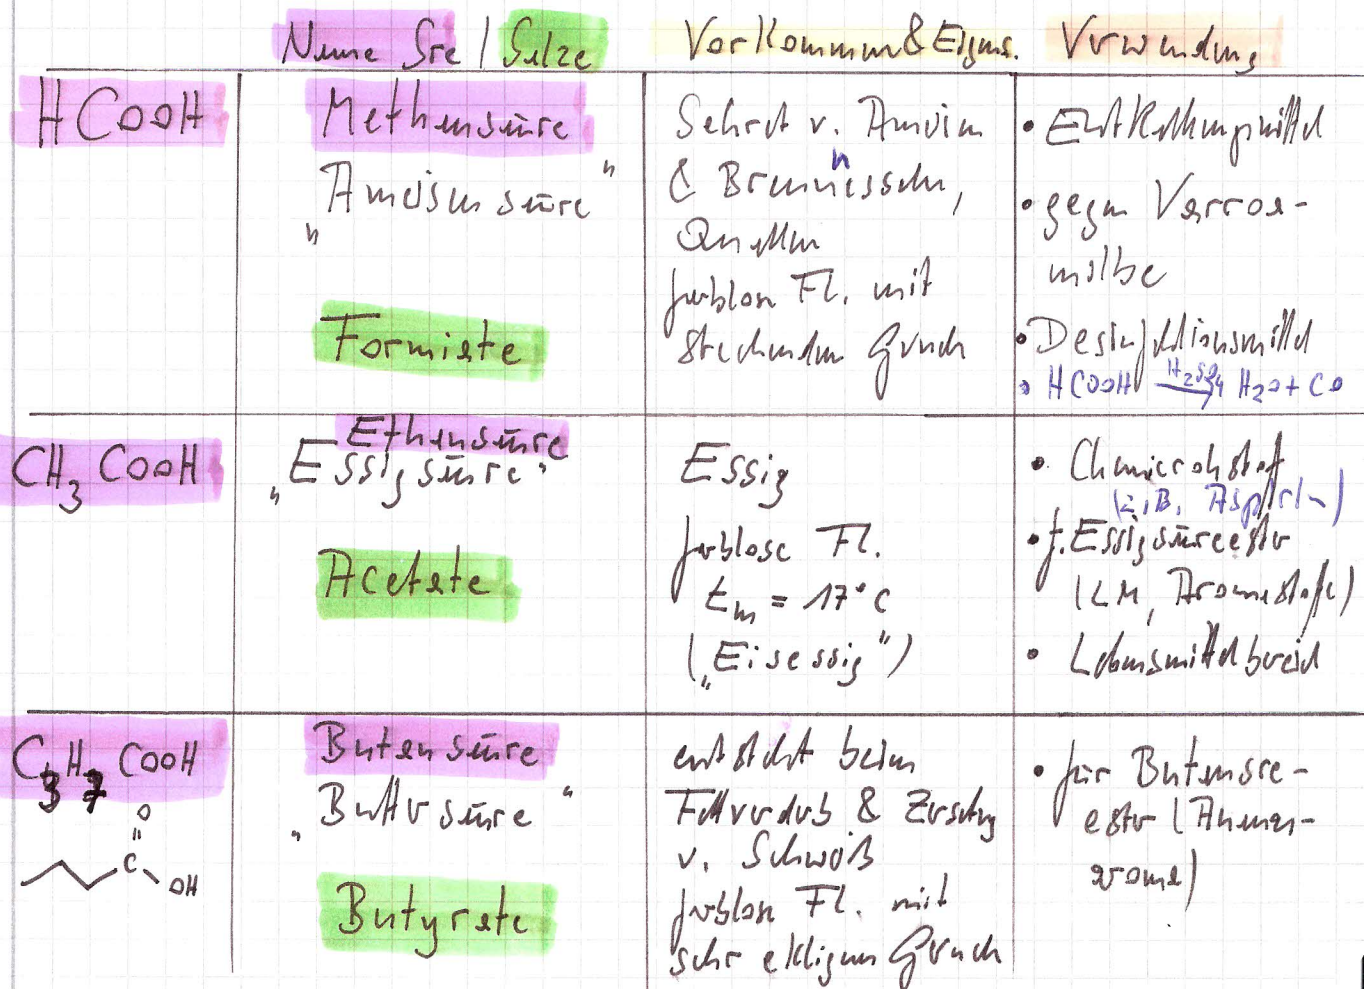 Name Sre / Salze
Vorkommen & Eigens.
Verwendung
HCOOH
Methansäure
"Ameisensäure"
Formiate
Sekret v. Ameisen
& Brennnesseln,
Quallen
farblose Fl. mit
stechendem Geruch
• Entkalkungsmittel
• gegen Varroa-
milbe
• Desinfektionsmittel
• HCOOH H₂SO₄→ H₂O + CO
CH₃COOH
Ethansäure
"Essigsäure"
Acetate
Essig
farblose Fl.
tm = 17°C
("Eisessig")
• Chemierohstoff
(z.B. Aspirin)
• f. Essigsäureester
(LM, Aromastoffe)
• Lebensmittelbereich
C₃H₇COOH
O
C
OH
Butansäure
"Buttersäure"
Butyrate
entsteht beim
Fettverderb & Zersetzg
v. Schweiß
farblose Fl. mit
sehr ekligem Geruch
• für Butansre-
ester (Ananas-
aroma)